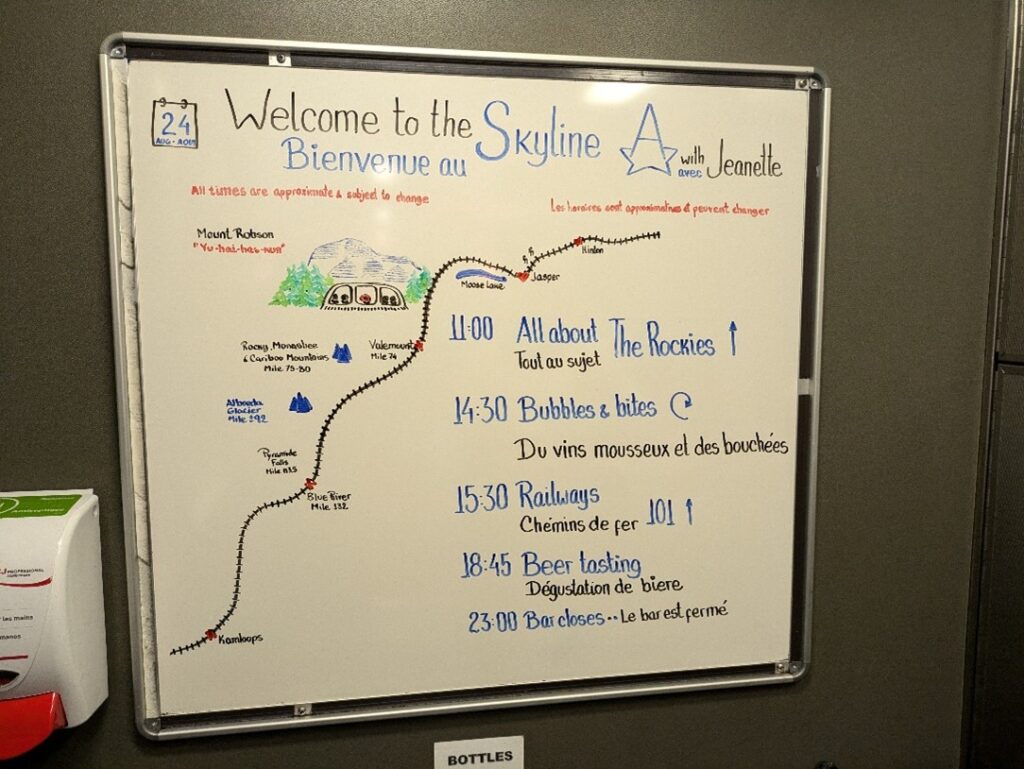 24
AUG - AOÛT
Welcome to the Skyline A
Bienvenue au
with Jeanette
avec
All times are approximate & subject to change
Les horaires sont approximatives et peuvent changer
Mount Robson
"Yu-hai-has-kun"
Hinton
Jasper
Moose Lake
Valemount
Mile 74
Rocky, Monashee
& Cariboo Mountains
Mile 75-80
Albreda
Glacier
Mile 92
Pyramide
Falls
Blue River
Mile 132
Kamloops
11:00 All about The Rockies
Tout au sujet
14:30 Bubbles & bites
Du vins mousseux et des bouchées
15:30 Railways 101
Chemins de fer
18:45 Beer tasting
Dégustation de biere
23:00 Bar closes.. Le bar est fermé
PROFESSIONAL
les mains
manos
BOTTLES